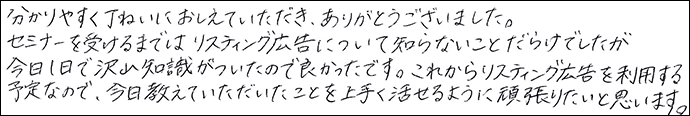 分かりやすく丁ねいにおしえていただき、ありがとうございました。
セミナーを受けるまではリスティング広告について知らないことだらけでしたが
今日1日で沢山知識がついたので良かったです。これからリスティング広告を利用する
予定なので、今日教えていただいたことを上手く活せるように頑張りたいと思います。